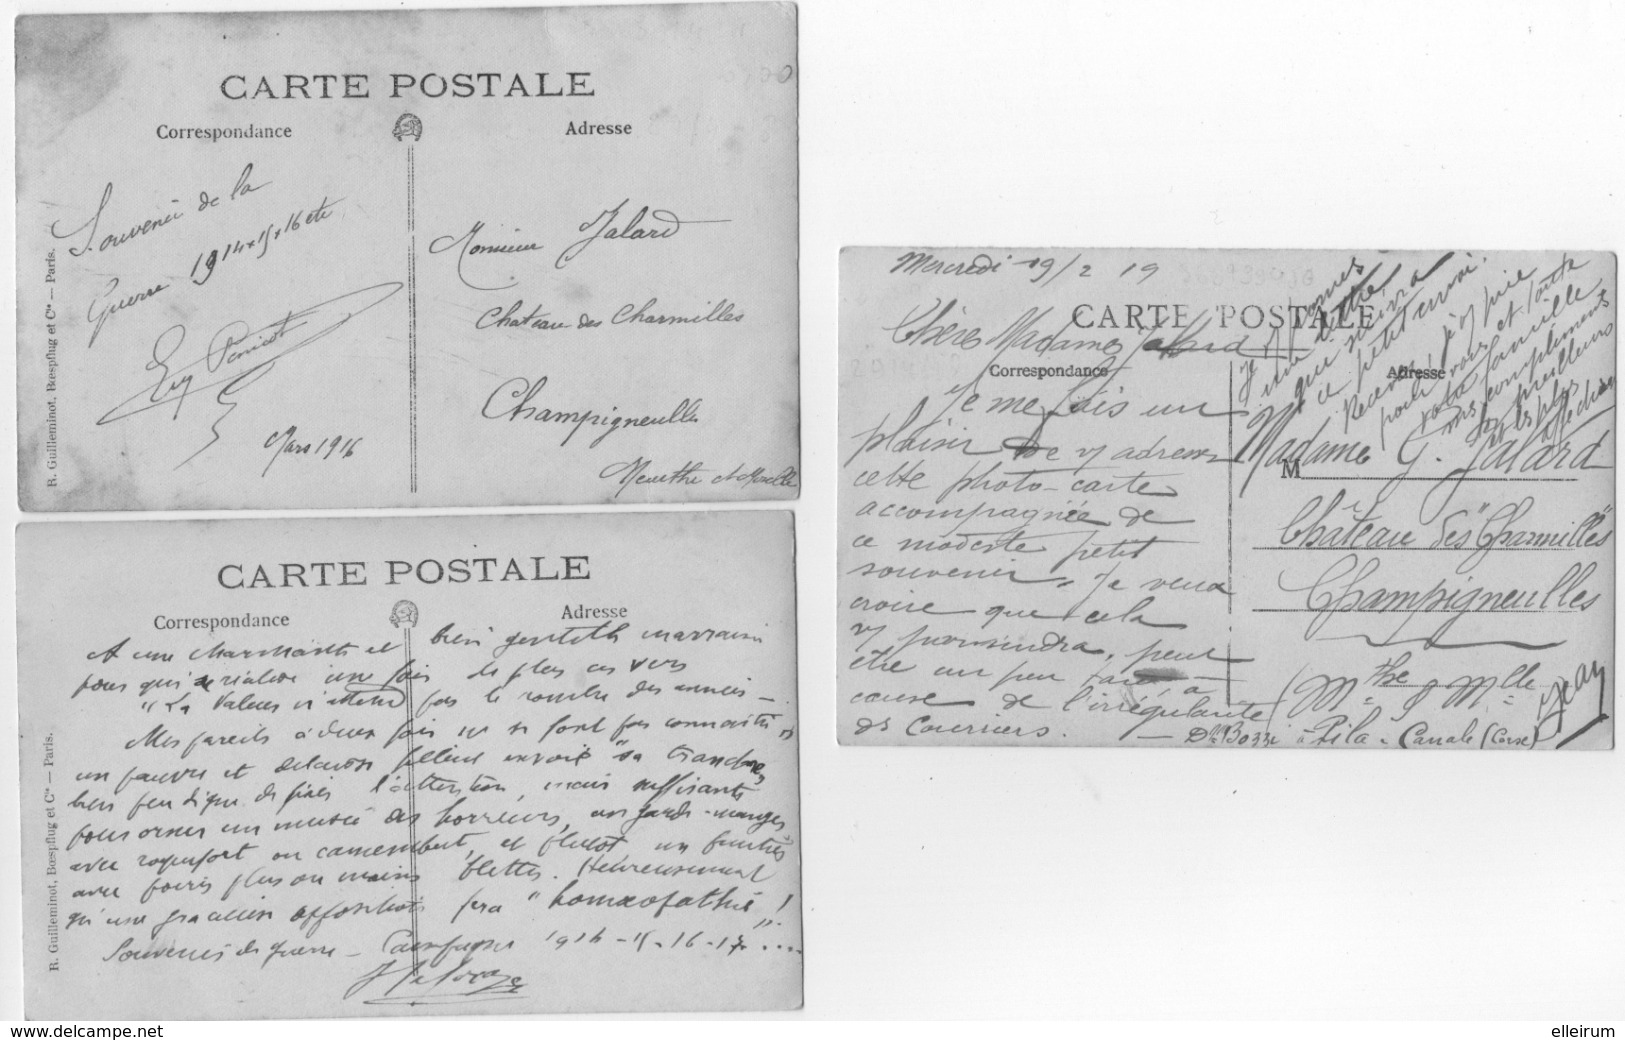 CARTE POSTALE
Correspondance
Adresse
R. Guilleminot, Bœspflug et Cie — Paris.
Souvenir de la
Guerre 1914+15+16 etc
Eug Panicot
Mars 1916
Monsieur Jalard
Chateau des Charmilles
Champigneulles
Meurthe et Moselle
CARTE POSTALE
Correspondance
Adresse
R. Guilleminot, Bœspflug et Cie — Paris.
A une charmante et bien gentille marraine
pour qui se réalise une fois de plus ces vers
"La Valeur n'attend pas le nombre des années —
Mes pareils à deux fois ne se font pas connaitre"
un pauvre et délaissé filleul envoie sa
bien peu digne de fixer l'attention, mais suffisante
pour orner un musée des horreurs, un garde-manger
avec roquefort ou camembert, et plutôt un fruitier
avec poires plus ou moins blettes. Heureusement
qu'une gracieuse opposition fera "homœopathie"!
Souvenirs de guerre — Campagne 1914-15-16-17....
Mercredi 19/2 19
CARTE POSTALE
Correspondance
Adresse
Chère Madame Jalard
Je me fais un
plaisir de vs adresser
cette photo-carte
accompagnée de
ce modeste petit
souvenir. Je veux
croire que cela
vs parviendra, peut
être un peu tard à
cause de l'irrégularité
des Courriers.
une lettre
qui suivra
ce petit envoi.
Recevez, je vs prie
pour vous et toute
votre famille
mes compliments
les meilleurs
et les plus
Madame G. Jalard
M
Château des "Charmilles"
Champigneulles
(Mthe & Mlle)
Jean
à Pila-Canale (Corse)
www.delcampe.net
elleirum